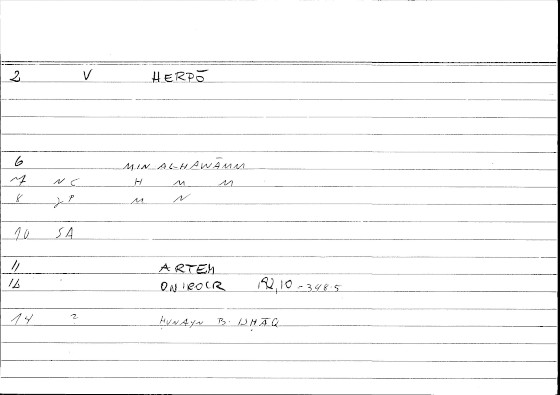 2 V HERPŌ
6 MIN AL-HAWĀMM
7 NC H M M
8 gP M N
10 SA
11 ARTEM
12 ONIROCR 192,10 - 348.5
14 ? ḤUNAYN B. ISḤĀQ